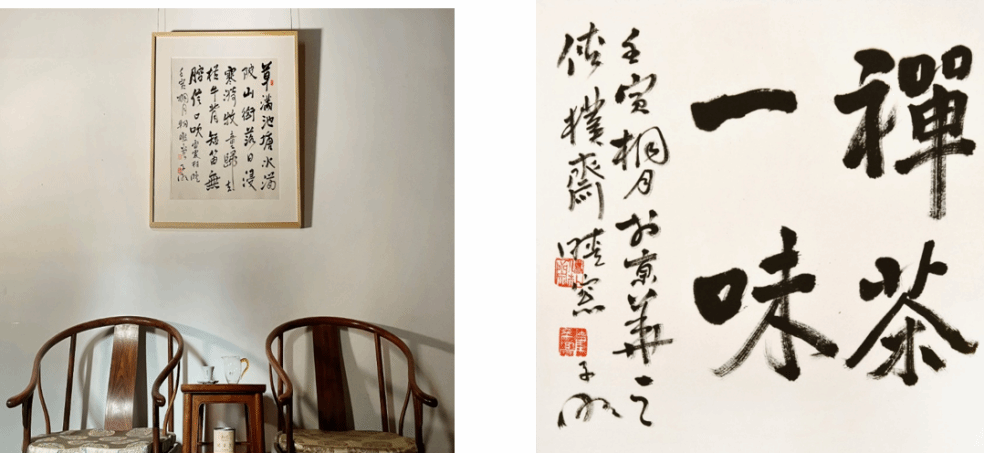 草滿池塘水滿
陂山銜落日浸
寒漪牧童歸去
橫牛背短笛無
腔信口吹雷震村晚
壬寅桐月
禪茶
一味
壬寅桐月於京華之
樸齋